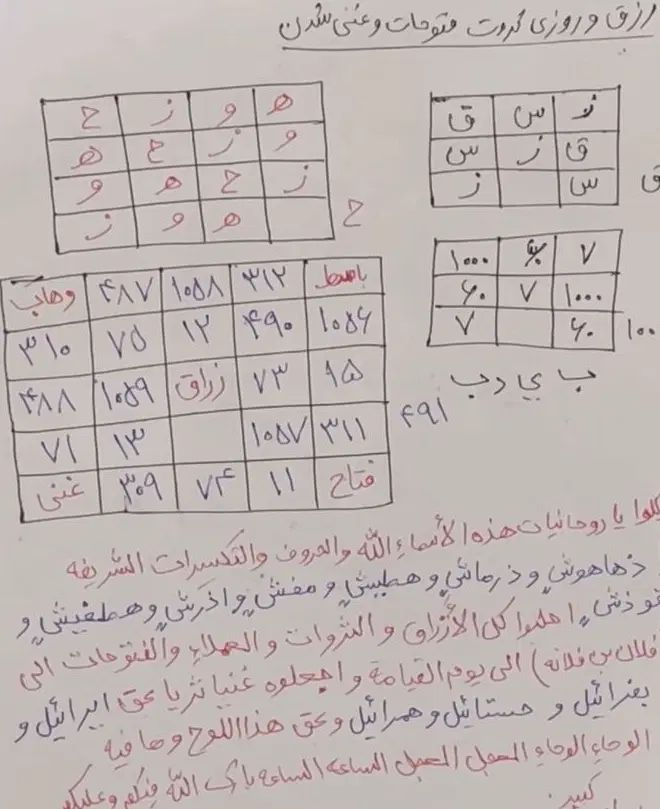 رزق و روزی ثروت فتوحات و غنی شدن
ز س ق
ق ز س
س ز
ق
ه و ز ح
و ز ح ه
ز ح ه و
ه و ز
ح
۷ ۶۰ ۱۰۰۰
۱۰۰۰ ۷ ۶۰
۶۰ ۷
۱۰۰
ب ي دب
باسط ۳۱۲ ۱۰۵۸ ۴۸۷ وهاب
۱۰۵۶ ۴۹۰ ۱۲ ۷۵ ۳۱۰
۱۵ ۷۳ رزاق ۱۰۵۹ ۴۸۸
۳۱۱ ۱۰۵۷ ۱۳ ۷۱
فتاح ۱۱ ۷۴ ۳۰۹ غنی
۴۹۱
يا روحانيات هذه الأسماء الله والحروف والتكسرات الشريفه
ذهاهوش و ذرماش و هطيش و مفش و اذرش و هطفيش و
احلموا كل الأرزاق و الثروات و العملاء و الفتوحات الى
فلان بن فلانه) الى يوم القيامة و اجعلوه غنيا ثريا بحق ابرائيل و
و حستائيل و همرائيل و بحق هذا اللوح و ما فيه
الوحاء الوحاء العجل العجل الساعه الساعه بارك الله فيكم و عليكم